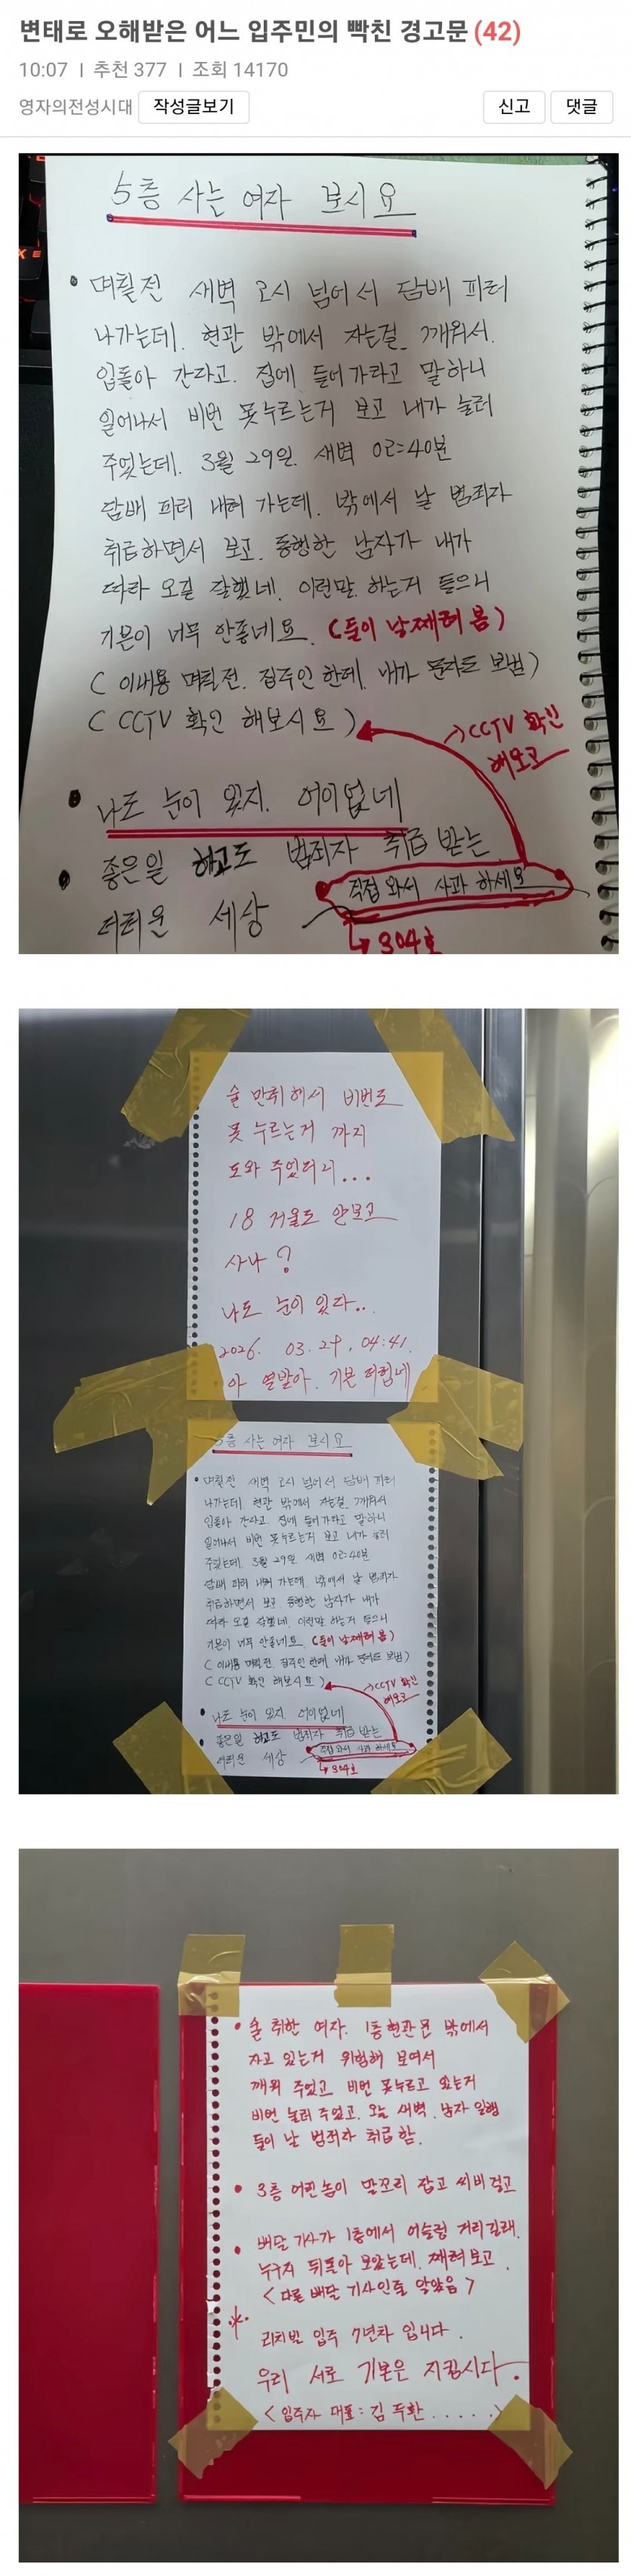 변태로 오해받은 어느 입주민의 빡친 경고문 (42)
10:07 | 추천 377 | 조회 14170
영자의전성시대 작성글보기 신고 댓글
5층 사는 여자 보시요
• 며칠전 새벽 2시 넘어서 담배 피러
나가는데. 현관 밖에서 자는걸 깨워서.
입돌아 간다고. 집에 들어가라고 말하니
일어나서 비번 못누르는거 보고 내가 눌러
주었는데. 3월 29일. 새벽 02:40분
담배 피러 내려 가는데. 밖에서 날 범죄자
취급하면서 보고. 동행한 남자가 내가
따라 오길 잘했네. 이런말. 하는거 들으니
기분이 너무 안좋네요. (둘이 날째려 봄)
( 이내용 며칠전. 집주인 한테. 내가 문자도 보냄)
( CCTV 확인 해보시요 )
→ CCTV 확인
해보고
• 나도 눈이 있지. 어이없네
• 좋은일 하고도 범죄자 취급 받는
더러운 세상
직접 와서 사과 하세요
↳ 304호
술 만취해서 비번도
못 누르는거 까지
도와 주었더니...
18 거울도 안보고
사나?
나도 눈이 있다..
2026. 03. 29. 04:41.
아 열받아. 기분 더럽네
5층 사는 여자 보시요
• 며칠전 새벽 2시 넘어서 담배 피러
나가는데. 현관 밖에서 자는걸. 깨워서
입돌아 간다고. 집에 들어가라고 말하니
일어나서 비번 못누르는거 보고 내가 눌러
주었는데. 3월 29일. 새벽 02:40분
담배 피러 내려 가는데. 밖에서 날 범죄자
취급하면서 보고. 동행한 남자가 내가
따라 오길 잘했네. 이런말 하는거 들으니
기분이 너무 안좋네요. (둘이 날째려 봄)
( 이내용 며칠전. 집주인 한테. 내가 문자도 보냄)
( CCTV 확인 해보시요 )
→ CCTV 확인
해보고
• 나도 눈이 있지. 어이없네
• 좋은일 하고도 범죄자 취급 받는
더러운 세상
직접 와서 사과 하세요
↳ 304호
• 술 취한 여자. 1층현관문 밖에서
자고 있는거 위험해 보여서
깨워 주었고 비번 못누르고 있는거
비번 눌러 주었고. 오늘 새벽. 남자 일행
들이 날 범죄자 취급함.
• 3층 어린놈이 말꼬리 잡고 씨비걸고
• 배달 기사가 1층에서 어슬렁 거리길래.
누구지 뒤돌아 보았는데. 째려보고.
< 다른 배달 기사인줄 알았음 >
* 리치빌 입주 7년차 입니다.
우리 서로 기본은 지킵시다.
< 입주자 대표 : 김두환 . . . . . >